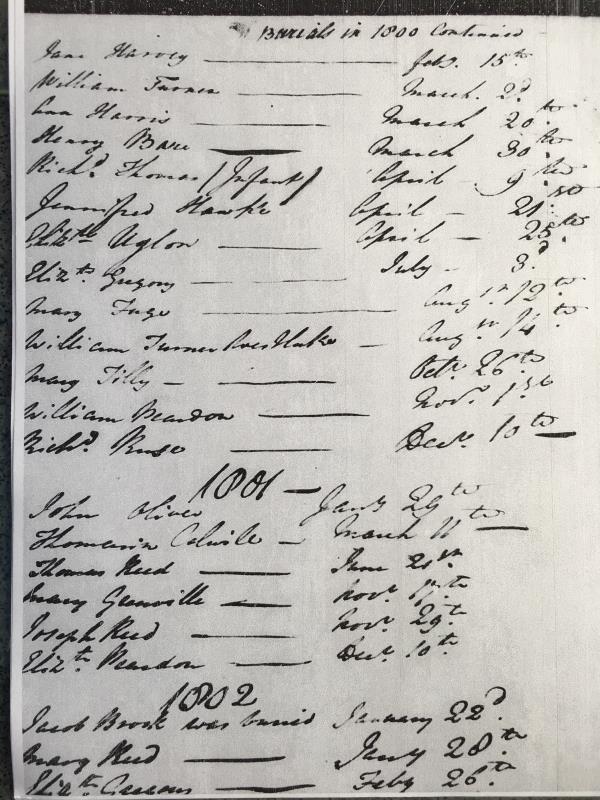 Burials in 1800 Continued
Jane Harvey Feb. 15th
William Turner March. 2d
Ann Harris March 20th
Henry Bare March 30th
Richd Thomas (Infant) April 9th
Jennifred Hawke April 21st
Elizth Uglow April 25th
Elizth Gregory July 3d
Mary Fuge Augst 12th
William Turner Augst 14th
Mary Tilly Octr 26th
William Reardon Novr 1st
Richd Ruse Decr 10th
1801
John Oliver Jany 29th
Thomasin Colwile March 11th
Thomas Reed June 21st
Mary Grenville Novr
Joseph Reed Novr 29th
Elizth Reardon Decr 10th
1802
Jacob Brook was buried January 22d
Mary Reed Jany 28th
Elizth Feby 26th